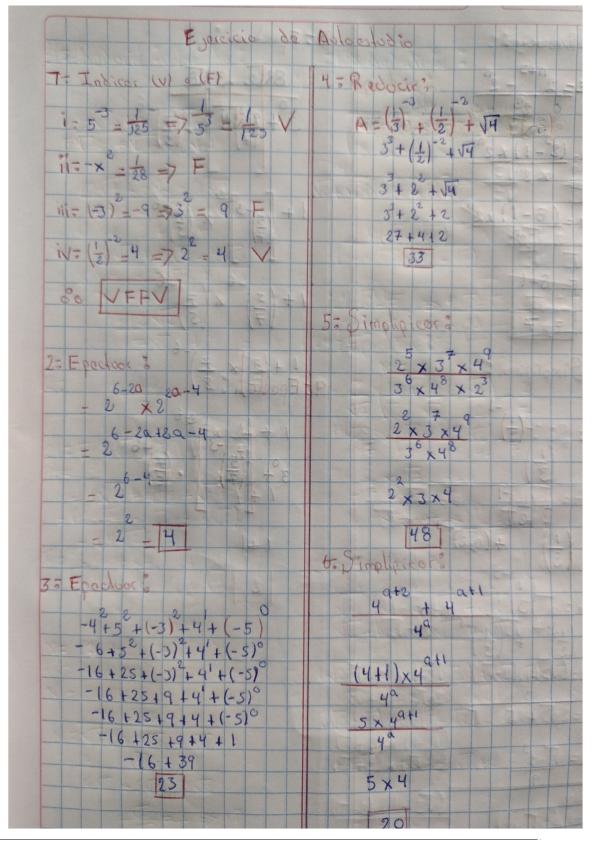 Ejercicio de Autoestudio
1= Indicar (V) o (F)
i= 5^-3 = 1/125 => 1/5^3 = 1/125 V
ii= -x^2 = 1/28 => F
iii= (-3)^2 = -9 => 3^2 = 9 F
iv= (1/2)^-2 = 4 => 2^2 = 4 V
∴ VFFV
2= Epectuar:
= 2^6-2a x 2^2a-4
= 2^6-2a+2a-4
= 2^6-4
= 2^2 = 4
3= Epectuar:
-4^2+5^2+(-3)^2+4^1+(-5)^0
-6+5^2+(-3)^2+4^1+(-5)^0
-16+25+(-3)^2+4^1+(-5)^0
-16+25+9+4^1+(-5)^0
-16+25+9+4+(-5)^0
-16+25+9+4+1
-16+39
23
4= Reducir:
A=(1/3)^-3+(1/2)^-2+√4
3^3+(1/2)^-2+√4
3^3+2^2+√4
3^3+2^2+2
27+4+2
33
5= Simplipicar:
2^5 x 3^7 x 4^9
3^6 x 4^8 x 2^3
2^2 x 3^7 x 4^9
3^6 x 4^8
2^2 x 3 x 4
48
6= Simplipicar:
4^a+2 + 4^a+1
4^a
(4+1)x4^a+1
4^a
5x4^a+1
4^a
5x4
20